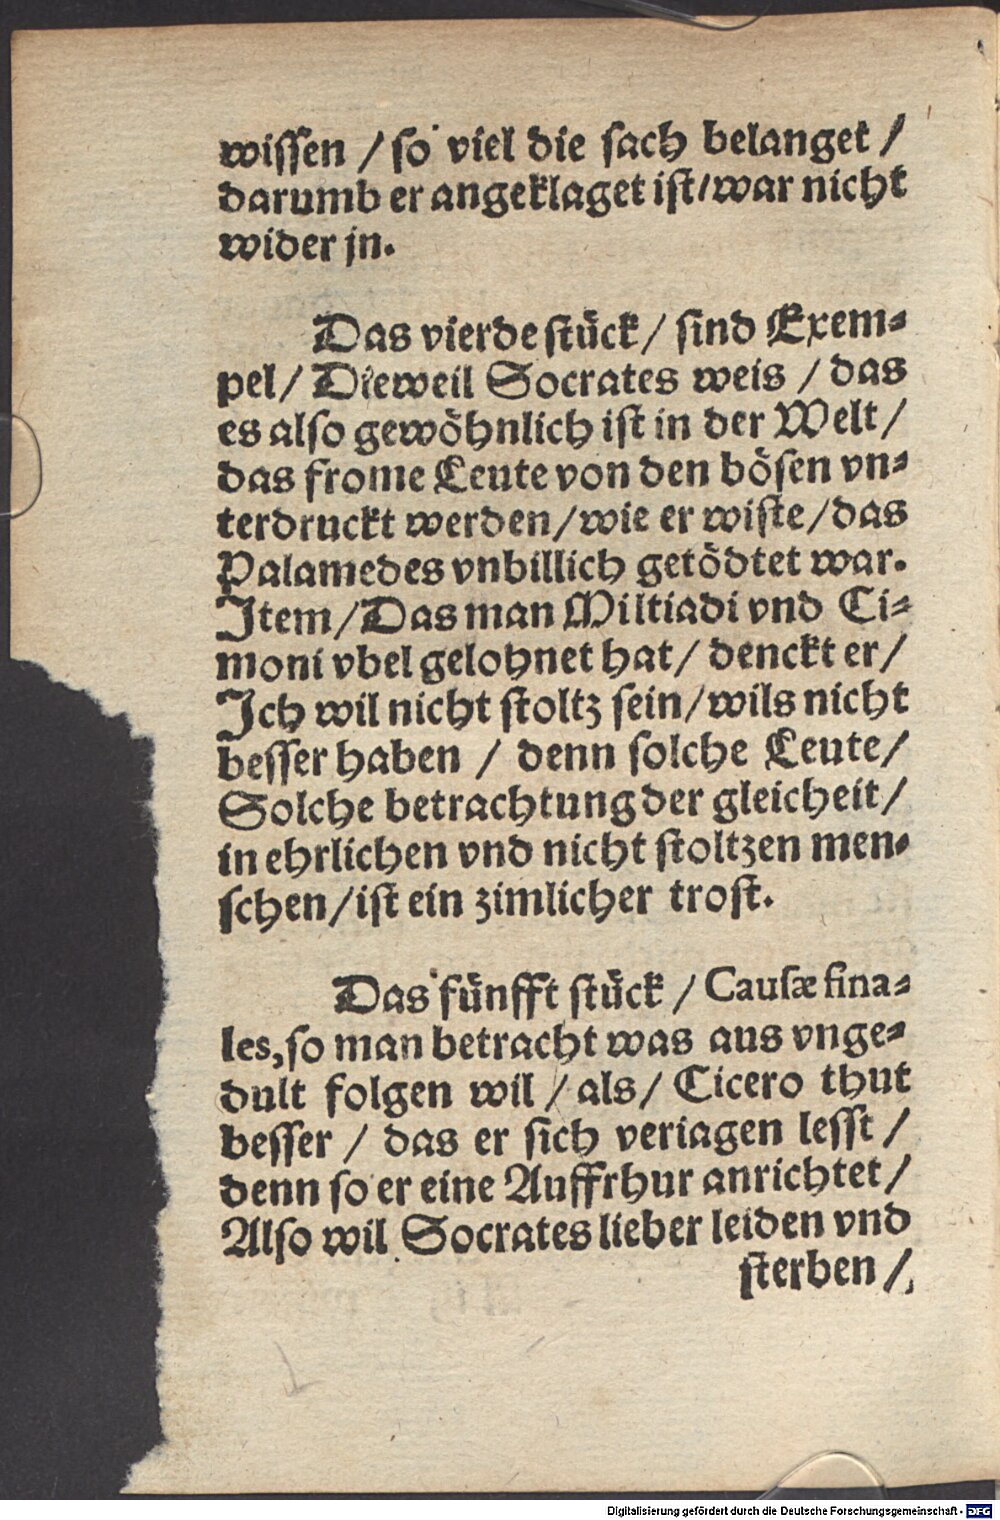 wiſſen / ſo viel die ſach belanget /
darumb er angeklaget iſt / war nicht
wider jn.
Das vierde ſtuͤck / ſind Exem⸗
pel / Dieweil Socrates weis / das
es alſo gewoͤhnlich iſt in der Welt /
das frome Leute von den boͤſen vn⸗
terdruckt werden / wie er wiſte / das
Palamedes vnbillich getoͤdtet war.
Item / Das man Miltiadi vnd Ci⸗
moni vbel gelohnet hat / denckt er /
Ich wil nicht ſtoltz ſein / wils nicht
beſſer haben / denn ſolche Leute /
Solche betrachtung der gleicheit /
in ehrlichen vnd nicht ſtoltzen men⸗
ſchen / iſt ein zimlicher troſt.
Das fuͤnfft ſtuͤck / Cauſæ fina⸗
les, ſo man betracht was aus vnge⸗
dult folgen wil / als / Cicero thut
beſſer / das er ſich veriagen leſſt /
denn ſo er eine Auffrhur anrichtet /
Alſo wil Socrates lieber leiden vnd
ſterben /
Digitalisierung gefördert durch die Deutsche Forschungsgemeinschaft - DFG